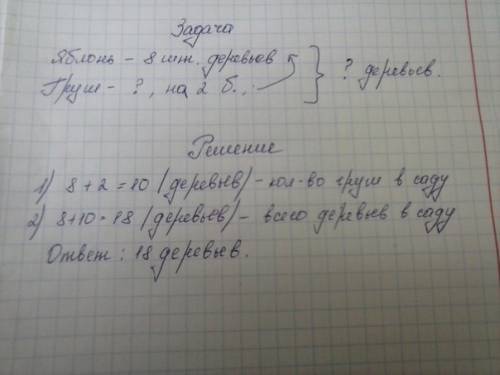 Задача
Яблонь - 8 шт. деревьев
Груш - ?, на 2 б.,
? деревьев.
Решение
1) 8 + 2 = 10 (деревьев) - кол-во груш в саду
2) 8+10=18 (деревьев) - всего деревьев в саду
Ответ: 18 деревьев.